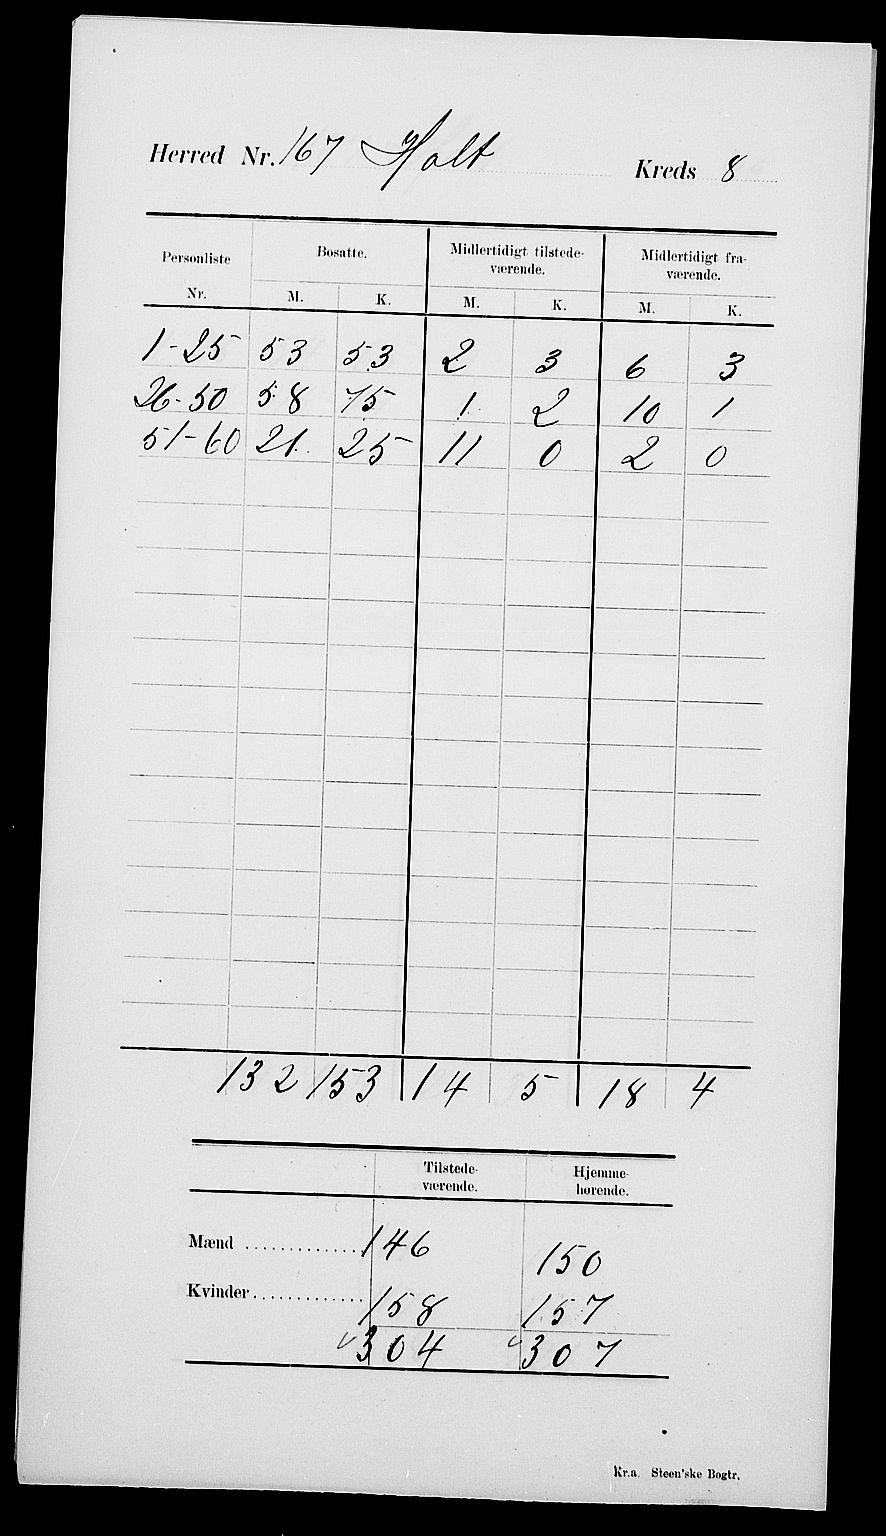 Herred Nr. 167 Holt Kreds 8
Personliste Bosatte. Midlertidigt tilstede- Midlertidigt fra-
værende. værende.
Nr. M. K. M. K. M. K.
1-25 53 53 2 3 6 3
26-50 58 75 1 2 10 1
51-60 21 25 11 0 2 0
132 153 14 5 18 4
Tilstede- Hjemme-
værende. hørende.
Mænd .............. 146 150
Kvinder.............. 158 157
304 307
Kr.a. Steen'ske Bogtr.